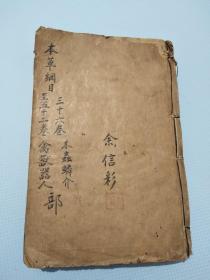 本草綱目
三十六卷 木蟲鱗介
至五十二卷 禽獸器人部
余信彩